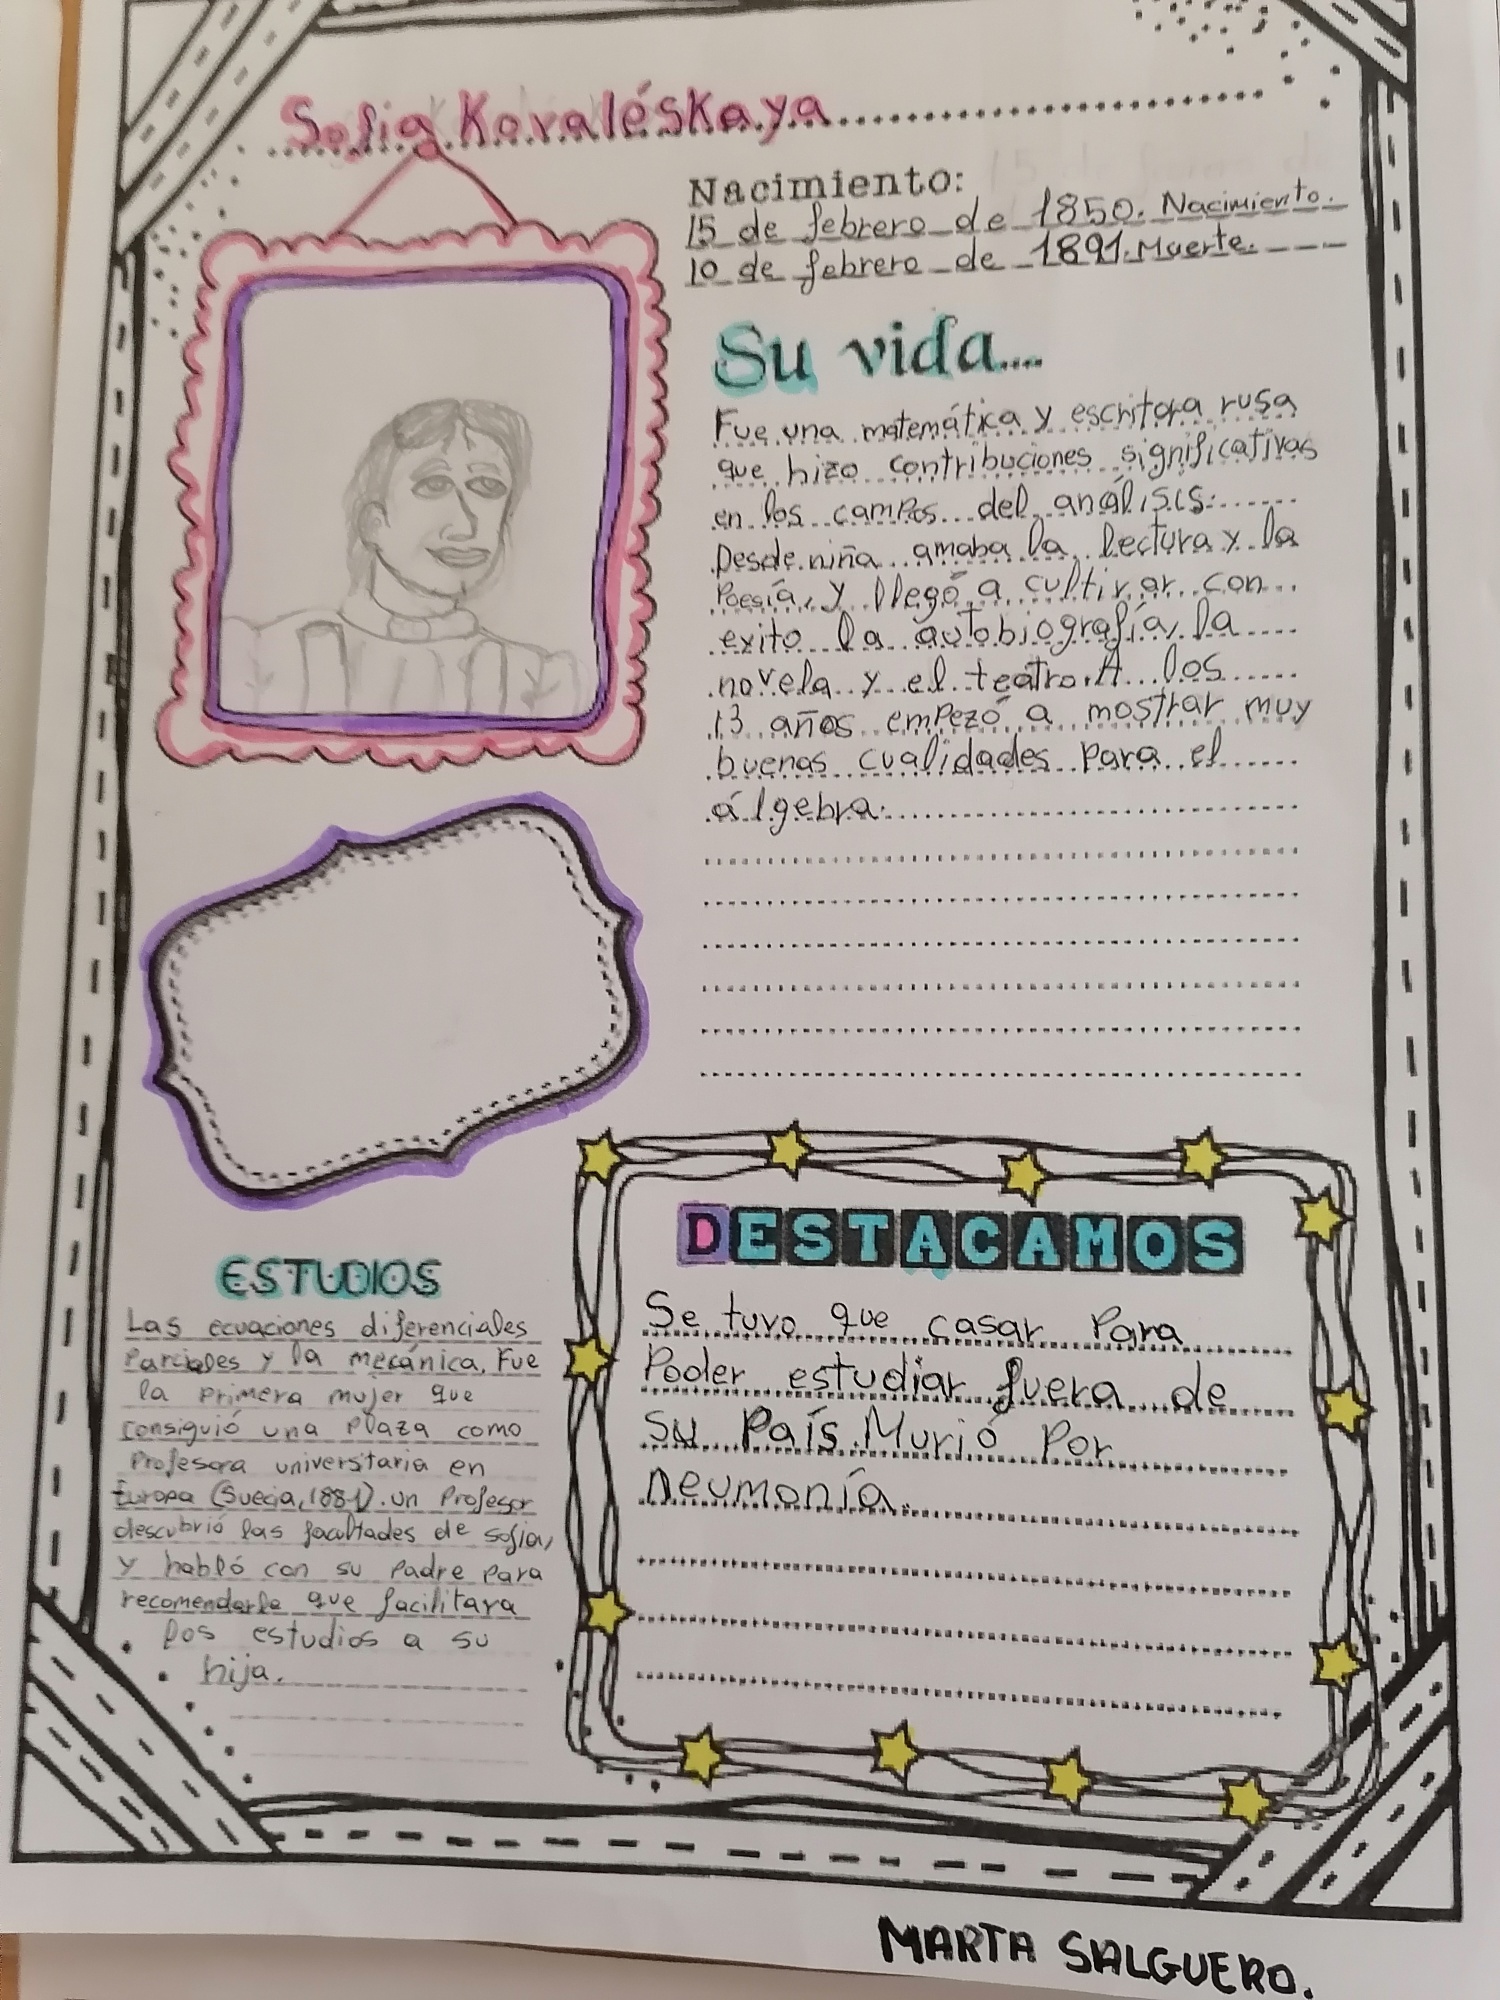 Sofia Kovaléskaya
Nacimiento:
15 de febrero de 1850. Nacimiento.
10 de febrero de 1891. Muerte.
Su vida....
Fue una matemática y escritora rusa
que hizo contribuciones significativas
en los campos del análisis.
Desde niña amaba la lectura y la
Poesía, y llegó a cultivar con
exito la autobiografía, la
novela y el teatro. A los
13 años empezó a mostrar muy
buenas cualidades para el
álgebra.
ESTUDIOS
Las ecuaciones diferenciales
Parciales y la mecánica. Fue
la primera mujer que
consiguió una plaza como
Profesora universitaria en
Europa (Suecia, 1881). un Profesor
descubrió las facultades de sofia,
y habló con su padre para
recomendarle que facilitara
los estudios a su
hija.
DESTACAMOS
Se tuvo que casar para
Poder estudiar fuera de
su País. Murió Por
neumonía.
MARTA SALGUERO.